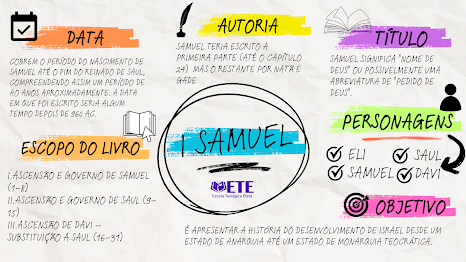 DATA
COBREM O PERÍODO DO NASCIMENTO DE
SAMUEL ATÉ O FIM DO REINADO DE SAUL,
COMPREENDENDO ASSIM UM PERÍODO DE
90 ANOS APROXIMADAMENTE. A DATA
EM QUE FOI ESCRITO SERIA ALGUM
TEMPO DEPOIS DE 960 AC.
ESCOPO DO LIVRO
I.ASCENSÃO E GOVERNO DE SAMUEL
(1-8)
II.ASCENSÃO E GOVERNO DE SAUL (9-
15)
III.ASCENSÃO DE DAVI –
SUBSTITUIÇÃO A SAUL (16-31)
AUTORIA
SAMUEL TERIA ESCRITO A
PRIMEIRA PARTE (ATÉ O CAPÍTULO
24) MAS O RESTANTE POR NATÃ E
GADE
I SAMUEL
ETE
Escola Teológica Elohi
TÍTULO
SAMUEL SIGNIFICA "NOME DE
DEUS" OU POSSIVELMENTE UMA
ABREVIATURA DE "PEDIDO DE
DEUS".
PERSONAGENS
ELI
SAUL
SAMUEL
DAVI
OBJETIVO
É APRESENTAR A HISTÓRIA DO DESENVOLVIMENTO DE ISRAEL DESDE UM
ESTADO DE ANARQUIA ATÉ UM ESTADO DE MONARQUIA TEOCRÁTICA.